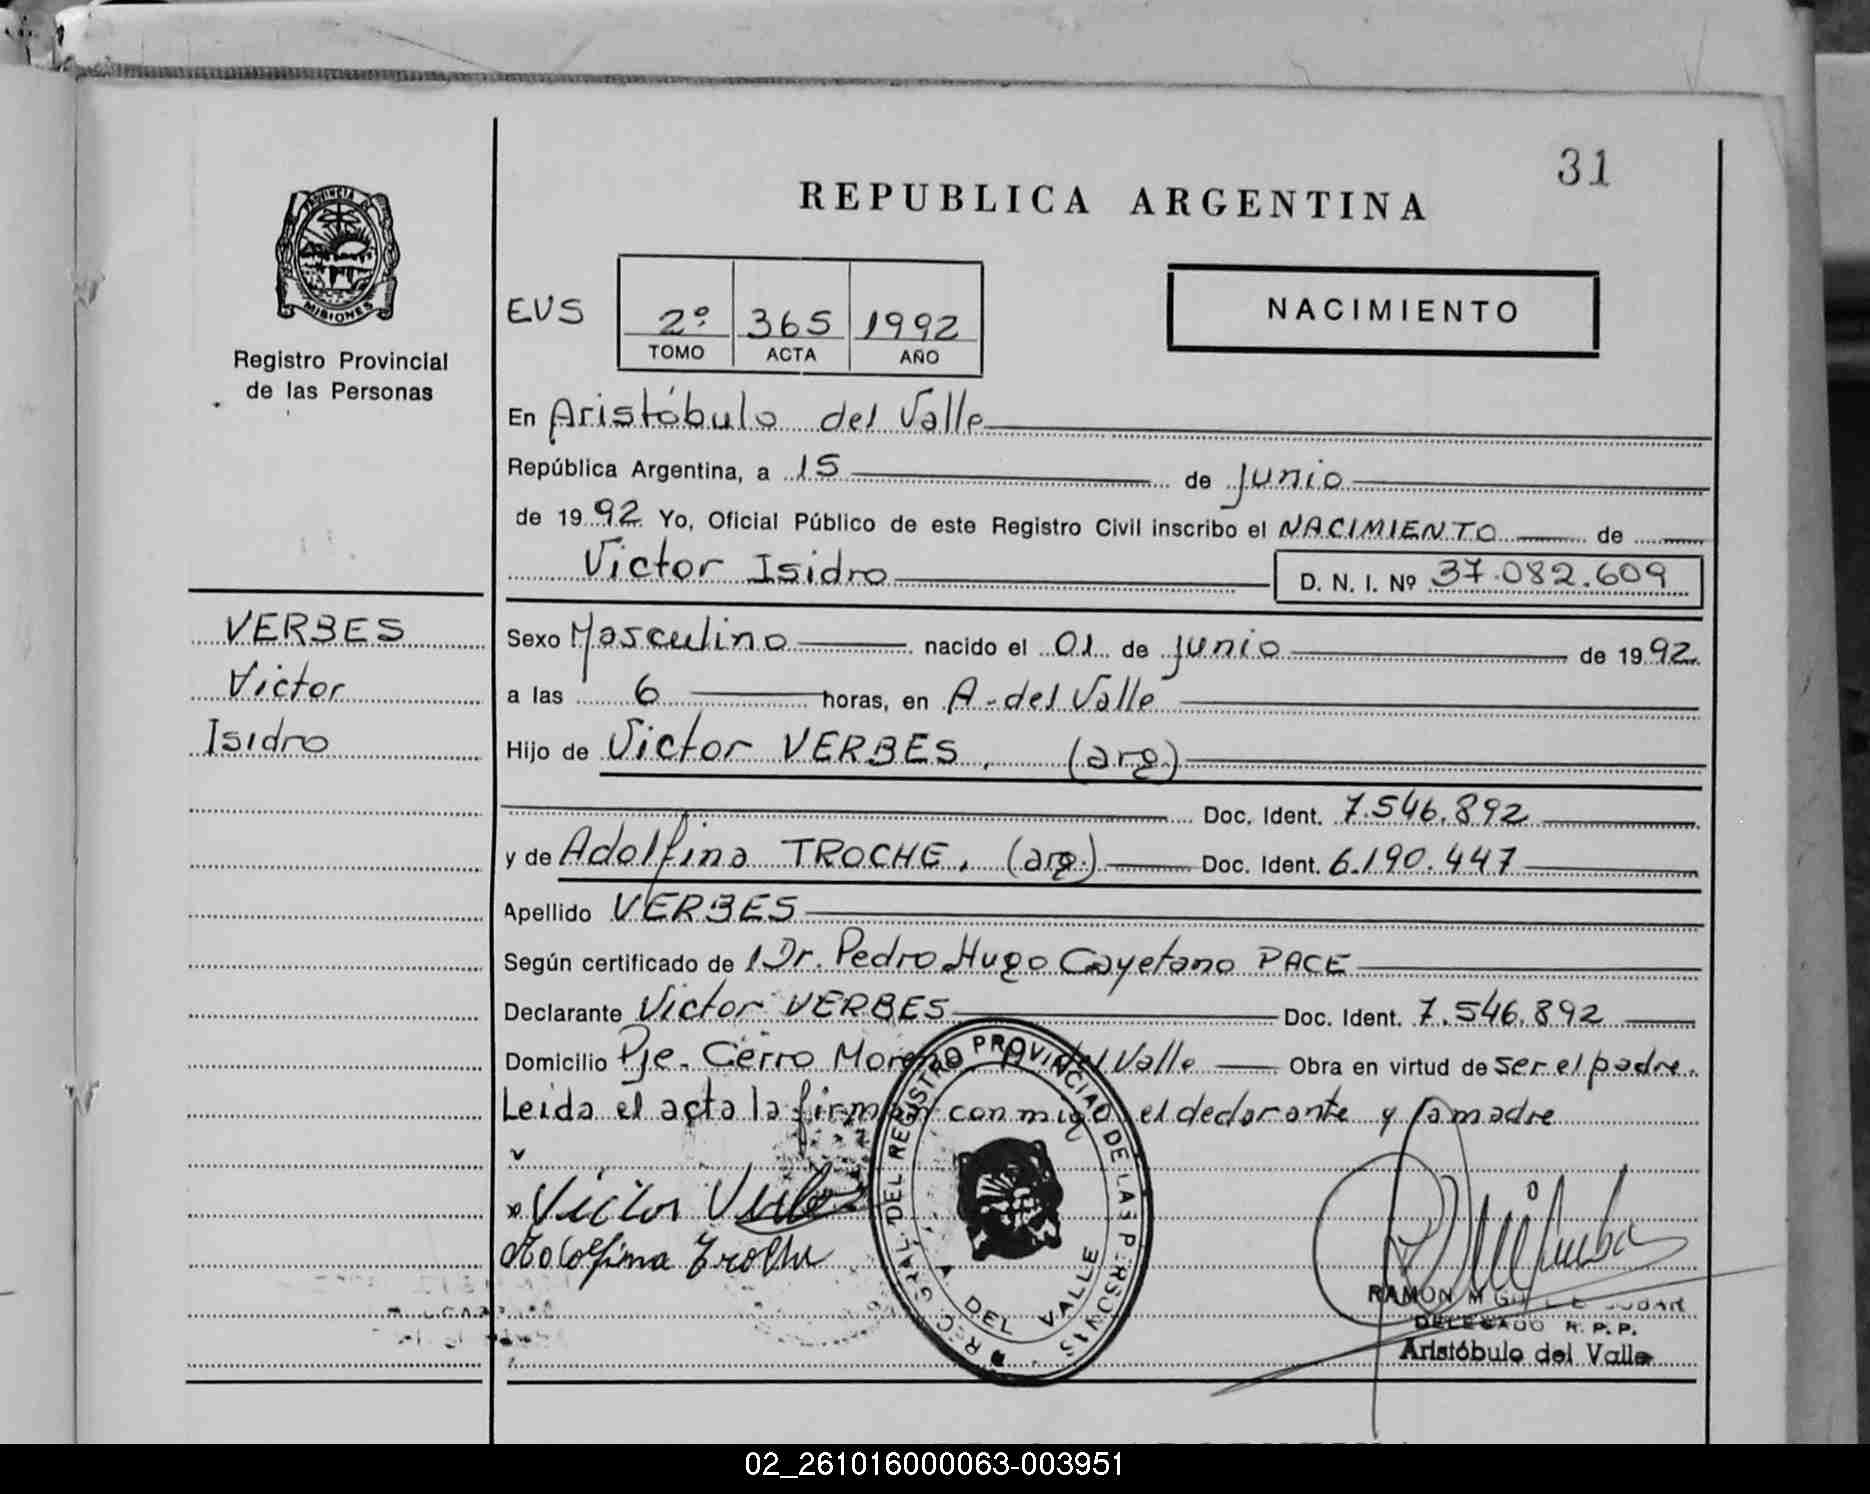 31
REPUBLICA ARGENTINA
PROVINCIA DE
MISIONES
Registro Provincial
de las Personas
EVS
2º 365 1992
TOMO ACTA AÑO
NACIMIENTO
En Aristóbulo del Valle
República Argentina, a 15 de Junio
de 1992 Yo, Oficial Público de este Registro Civil inscribo el NACIMIENTO de
Victor Isidro D. N. I. Nº 37.082.609
VERBES
Victor
Isidro
Sexo Masculino nacido el 01 de Junio de 1992
a las 6 horas, en A. del Valle
Hijo de Victor VERBES, (arg)
Doc. Ident. 7.546.892
y de Adolfina TROCHE, (arg.) Doc. Ident. 6.190.447
Apellido VERBES
Según certificado de l Dr. Pedro Hugo Cayetano PACE
Declarante Victor VERBES Doc. Ident. 7.546.892
Domicilio Pje. Cerro Moreno A. del Valle Obra en virtud de ser el padre.
Leida el acta la firman conmigo el declarante y la madre
Victor Verbes
Adolfina Troche
REC. GRAL. DEL REGISTRO PROVINCIAL DE LAS PERSONAS
A. DEL VALLE
RAMON MIGUEL ESCOBAR
DELEGADO R. P. P.
Aristóbulo del Valle
02_261016000063-003951